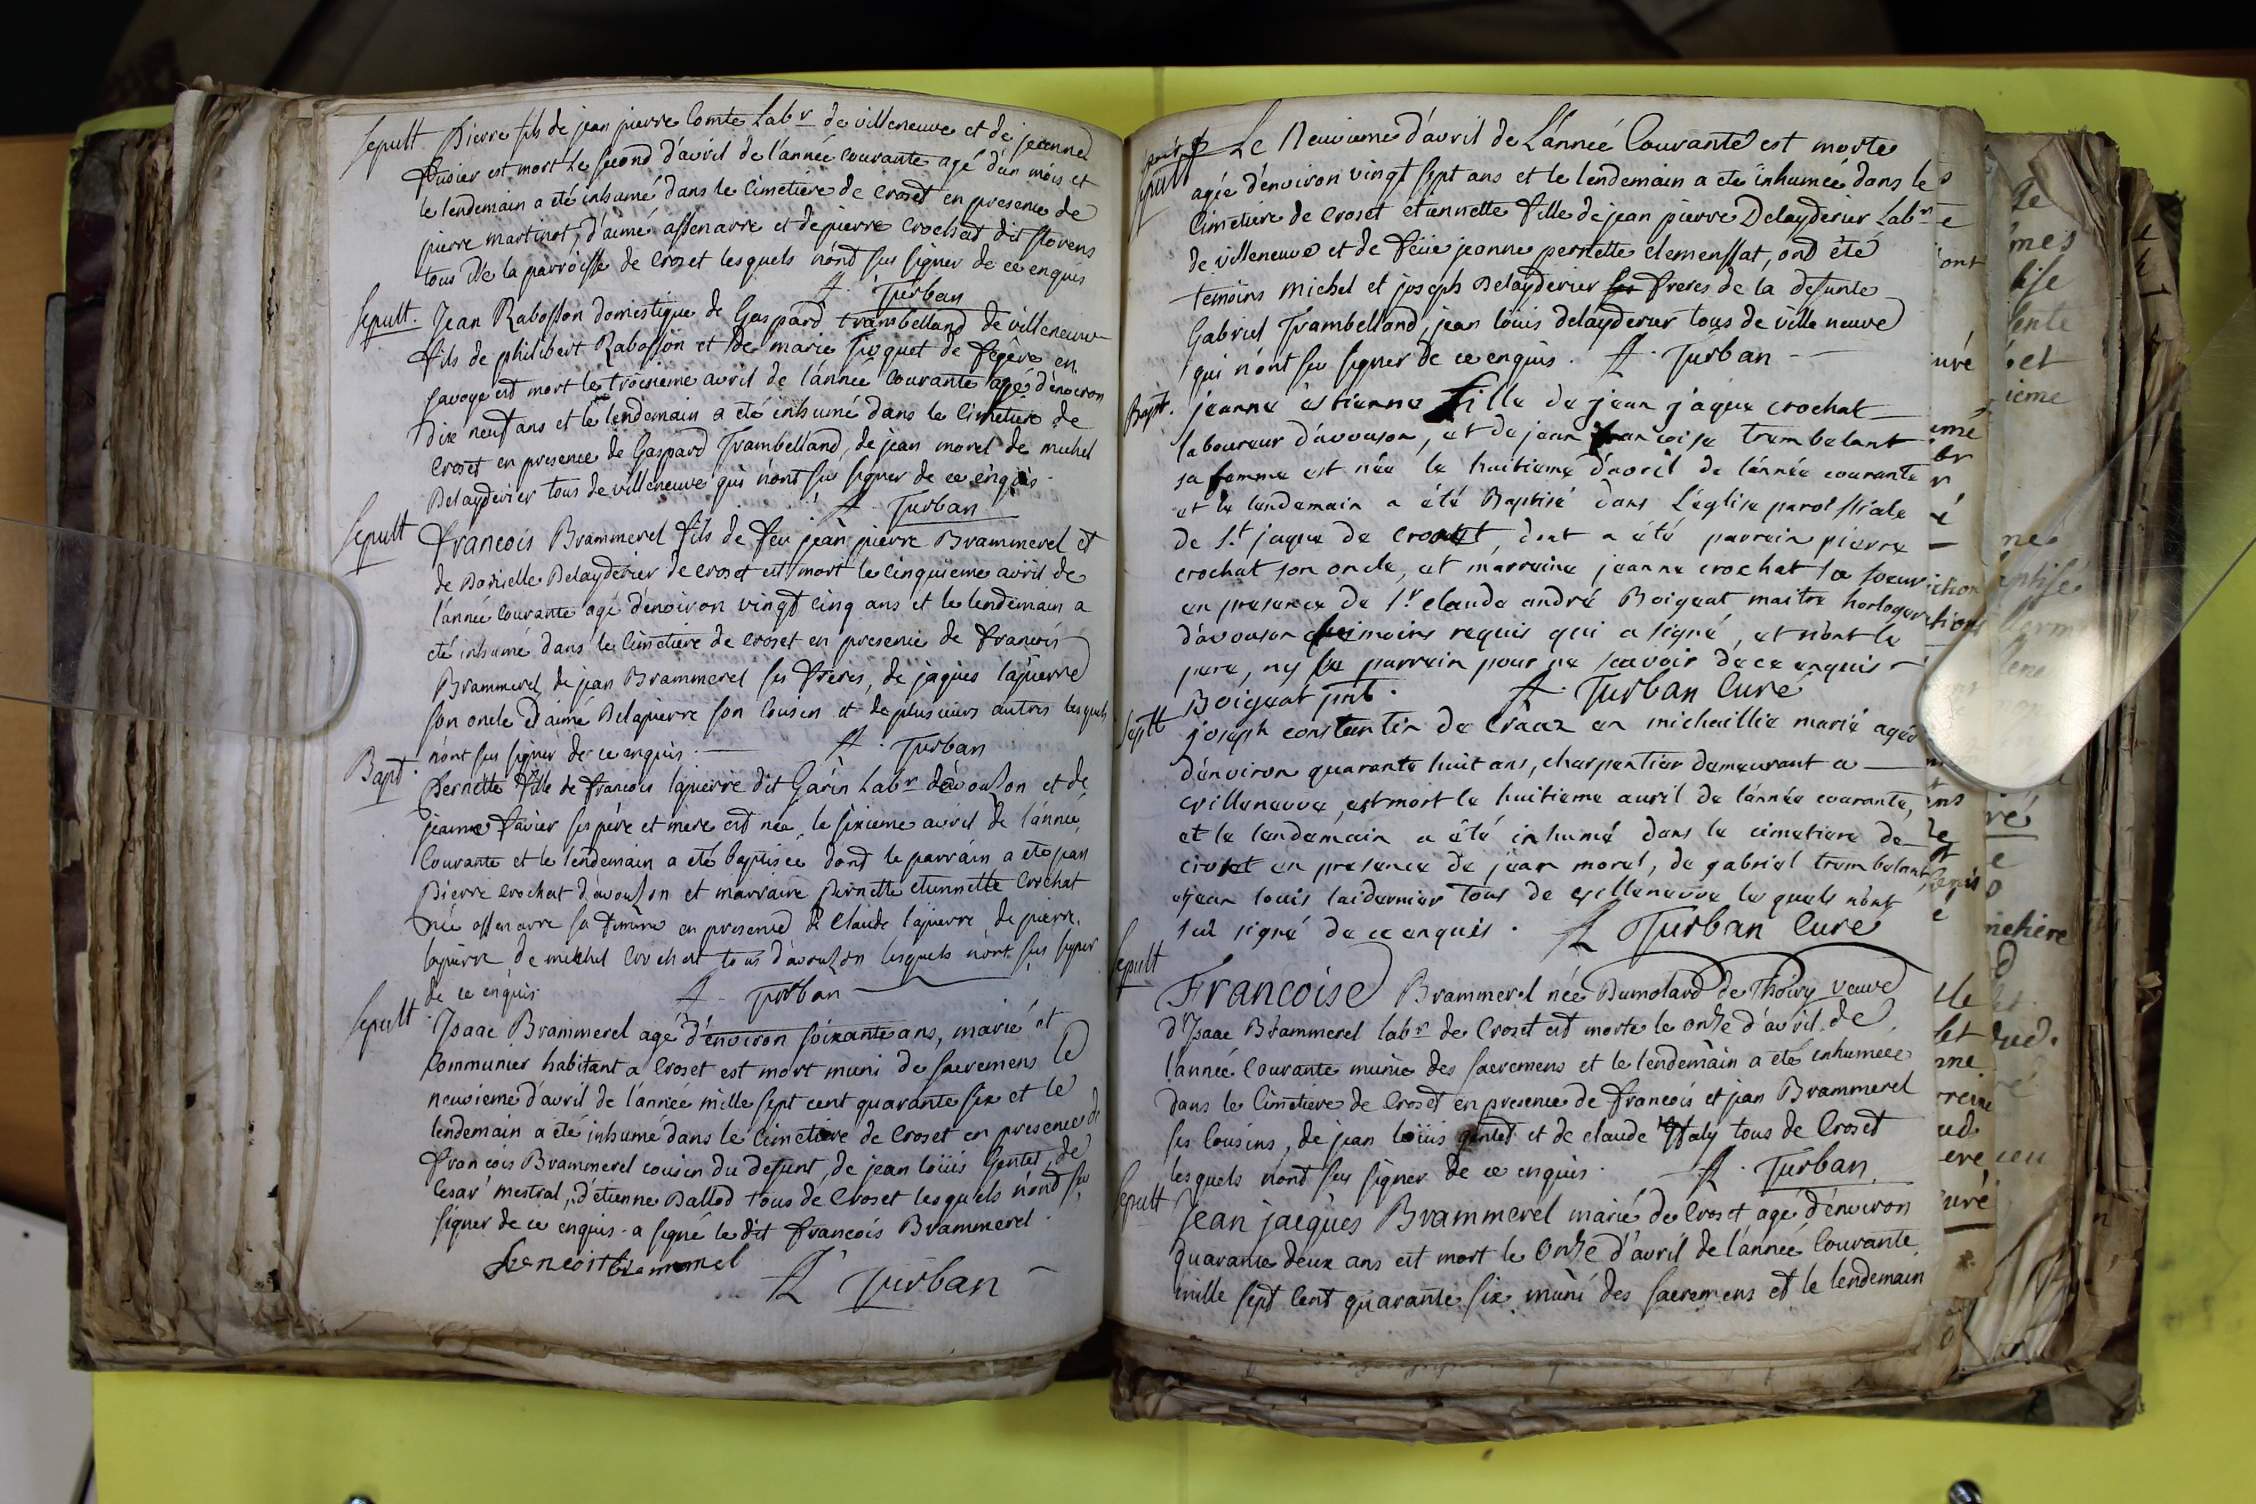 Sepult Pierre fils de jean pierre Comte Labr de villeneuve et de jeanne
est mort le second d'avril de l'année courante agé d'un mois et
le lendemain a été inhumé dans le Cimetière de Croset en presence de
pierre martinot, d'aimé assenarre et de pierre Crochat dit
tous de la parroisse de Croset lesquels n'ont sus signer de ce enquis
A. Turban
Sepult. Jean Rabosson domestique de Gaspard trambelland de villeneuve
fils de philibert Rabosson et de marie de en
savoye est mort le troisieme avril de l'année courante agé d'environ
dix neuf ans et le lendemain a été inhumé dans le Cimetiere de
Croset en presence de Gaspard Trambelland, de jean morel de michel
Delayderier tous de villeneuve qui n'ont su signer de ce enquis
A. Turban
Sepult Francois Brammerel fils de feu jean pierre Brammerel et
de Delayderier de Croset est mort le cinquieme avril de
l'année courante agé d'environ vingt cinq ans et le lendemain a
eté inhumé dans le Cimetiere de Croset en presence de francois
Brammerel, de jean Brammerel ses freres, de jaques lapierre
son oncle d'aimé Delapierre son Cousin et de plusieurs autres lesquels
n'ont sus signer de ce enquis. A. Turban
Bapt. Pernette fille de francois lapierre dit Garin Labr d'avouson et de
jeanne favier ses père et mere est née le sixieme avril de l'année
Courante et le lendemain a eté baptisée dont le parrain a eté jean
Pierre Crochat d'avouson et marraine Pernette etiennette Crochat
née assenarre sa femme en presence de Claude lapierre de pierre
lapierre de michel Crochat tous d'avouson lesquels n'ont sus signer
de ce enquis A. Turban
Sepult Isaac Brammerel agé d'environ soixante ans, marié et
Communier habitant a Croset est mort muni de sacremens le
neuvieme d'avril de l'année mille sept cent quarante six et le
lendemain a eté inhumé dans le Cimetiere de Croset en presence de
Francois Brammerel cousin du defunt, de jean loüis Gentet, de
Cesar mestral, d'etienne Ballod tous de Croset lesquels n'ont su
signer de ce enquis a signé le dit Francois Brammerel.
A. Turban
Sepult Le Neuvieme d'avril de L'année Courante est morte
agée d'environ vingt sept ans et le lendemain a eté inhumée dans le
Cimetiere de Croset etiennette fille de jean pierre Delayderier Labr
de villeneuve et de feüe jeanne pernette Clemenssat, ont été
temoins michel et joseph Delayderier freres de la defunte
Gabriel Trambelland, jean loüis delayderier tous de villeneuve
qui n'ont su signer de ce enquis. A. Turban
Bapt. jeanne estienne fille de jean jaque crochat
laboureur d'avouson, et de jean francoise trambelant
sa femme est née le huitieme d'avril de l'année courante
et le landemain a été Baptisé dans L'église paroissiale
de St jaque de Croset, dont a été parrain pierre
crochat son oncle, et marraine jeanne crochat sa soeur
en presence de sr claude andré Boigeat maitre horloger
d'avouson temoins requis qui a signé, et n'ont le
pere, ny le parrain pour ne scavoir de ce enquis
Boigeat pnt. A. Turban Curé
Septt joseph constantin de Craaz en michaillie marié agée
d'environ quarante huit ans, charpentier demeurant a
villeneuve, est mort le huitieme avril de l'année courante,
et le landemain a été inhumé dans le cimetiere de
croset en presence de jean morel, de gabriel trambelant
et jean louis laidernier tous de villeneuve lesquels n'ont
sut signé de ce enquis. A. Turban Cure
Sepult Francoise Brammerel née Dumolard de Thoiry veuve
d'Isaac Brammerel labr de Croset est morte le onze d'avril de
l'année Courante munie des sacremens et le lendemain a eté inhumee
dans le Cimetiere de Croset en presence de francois et jean Brammerel
ses Cousins, de jean loüis gentet et de claude tous de Croset
lesquels n'ont sus signer de ce enquis. A. Turban
Sepult Jean jacques Brammerel marié de Croset agé d'environ
quarante deux ans est mort le Onze d'avril de l'année Courante
mille sept Cent quarante six muni des sacremens et le lendemain